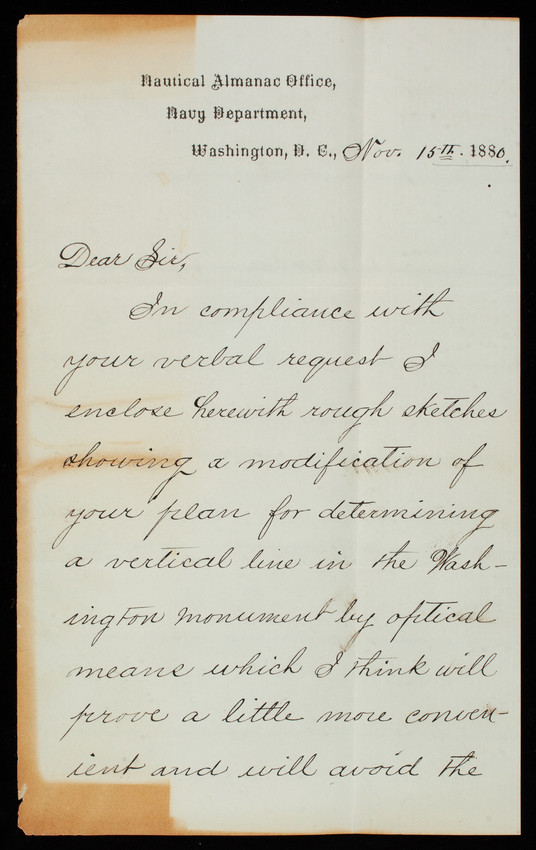 Nautical Almanac Office,
Navy Department,
Washington, D. C., Nov. 15th. 1880.
Dear Sir,
In compliance with
your verbal request I
enclose herewith rough sketches
showing a modification of
your plan for determining
a vertical line in the Wash-
ington monument by optical
means which I think will
prove a little more conven-
ient and will avoid the